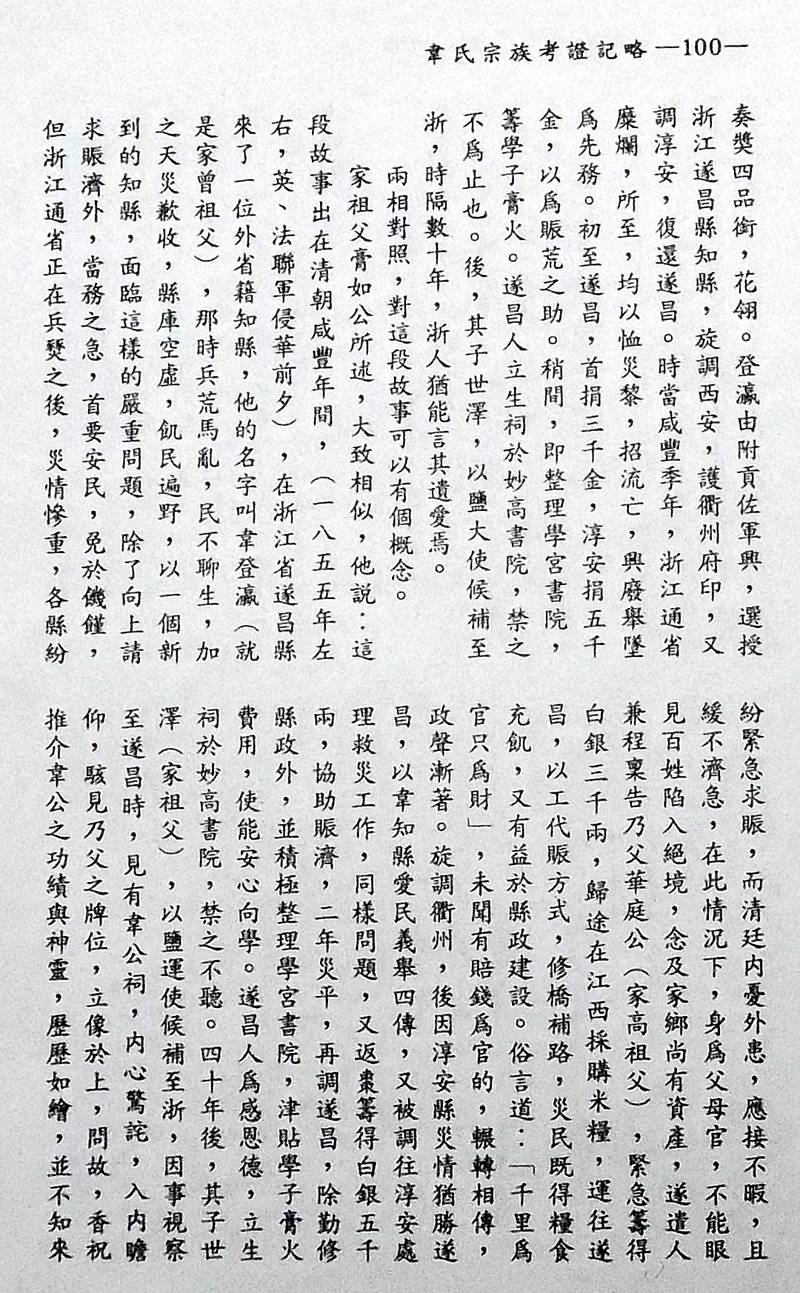 韋氏宗族考證記略—100—
奏獎四品銜，花翎。登瀛由附貢佐軍興，選授
浙江遂昌縣知縣，旋調西安，護衢州府印，又
調淳安，復還遂昌。時當咸豐季年，浙江通省
糜爛，所至，均以恤災黎，招流亡，興廢舉墜
爲先務。初至遂昌，首捐三千金，淳安捐五千
金，以爲賑荒之助。稍間，即整理學宮書院，
籌學子膏火。遂昌人立生祠於妙高書院，禁之
不爲止也。後，其子世澤，以鹽大使候補至
浙，時隔數十年，浙人猶能言其遺愛焉。
兩相對照，對這段故事可以有個概念。
家祖父膏如公所述，大致相似，他說：這
段故事出在清朝咸豐年間，（一八五五年左
右，英、法聯軍侵華前夕），在浙江省遂昌縣
來了一位外省籍知縣，他的名字叫韋登瀛（就
是家曾祖父），那時兵荒馬亂，民不聊生，加
之天災歉收，縣庫空虛，飢民遍野，以一個新
到的知縣，面臨這樣的嚴重問題，除了向上請
求賑濟外，當務之急，首要安民，免於饑饉，
但浙江通省正在兵燹之後，災情慘重，各縣紛
紛緊急求賑，而清廷內憂外患，應接不暇，且
緩不濟急，在此情況下，身爲父母官，不能眼
見百姓陷入絕境，念及家鄉尚有資產，遂遣人
兼程稟告乃父華庭公（家高祖父），緊急籌得
白銀三千兩，歸途在江西採購米糧，運往遂
昌，以工代賑方式，修橋補路，災民既得糧食
充飢，又有益於縣政建設。俗言道：「千里爲
官只爲財」，未聞有賠錢爲官的，輾轉相傳，
政聲漸著。旋調衢州，後因淳安縣災情猶勝遂
昌，以韋知縣愛民義舉四傳，又被調往淳安處
理救災工作，同樣問題，又返棗籌得白銀五千
兩，協助賑濟，二年災平，再調遂昌，除勤修
縣政外，並積極整理學宮書院，津貼學子膏火
費用，使能安心向學。遂昌人爲感恩德，立生
祠於妙高書院，禁之不聽。四十年後，其子世
澤（家祖父），以鹽運使候補至浙，因事視察
至遂昌時，見有韋公祠，內心驚詫，入內瞻
仰，駭見乃父之牌位，立像於上，問故，香祝
推介韋公之功績與神靈，歷歷如繪，並不知來